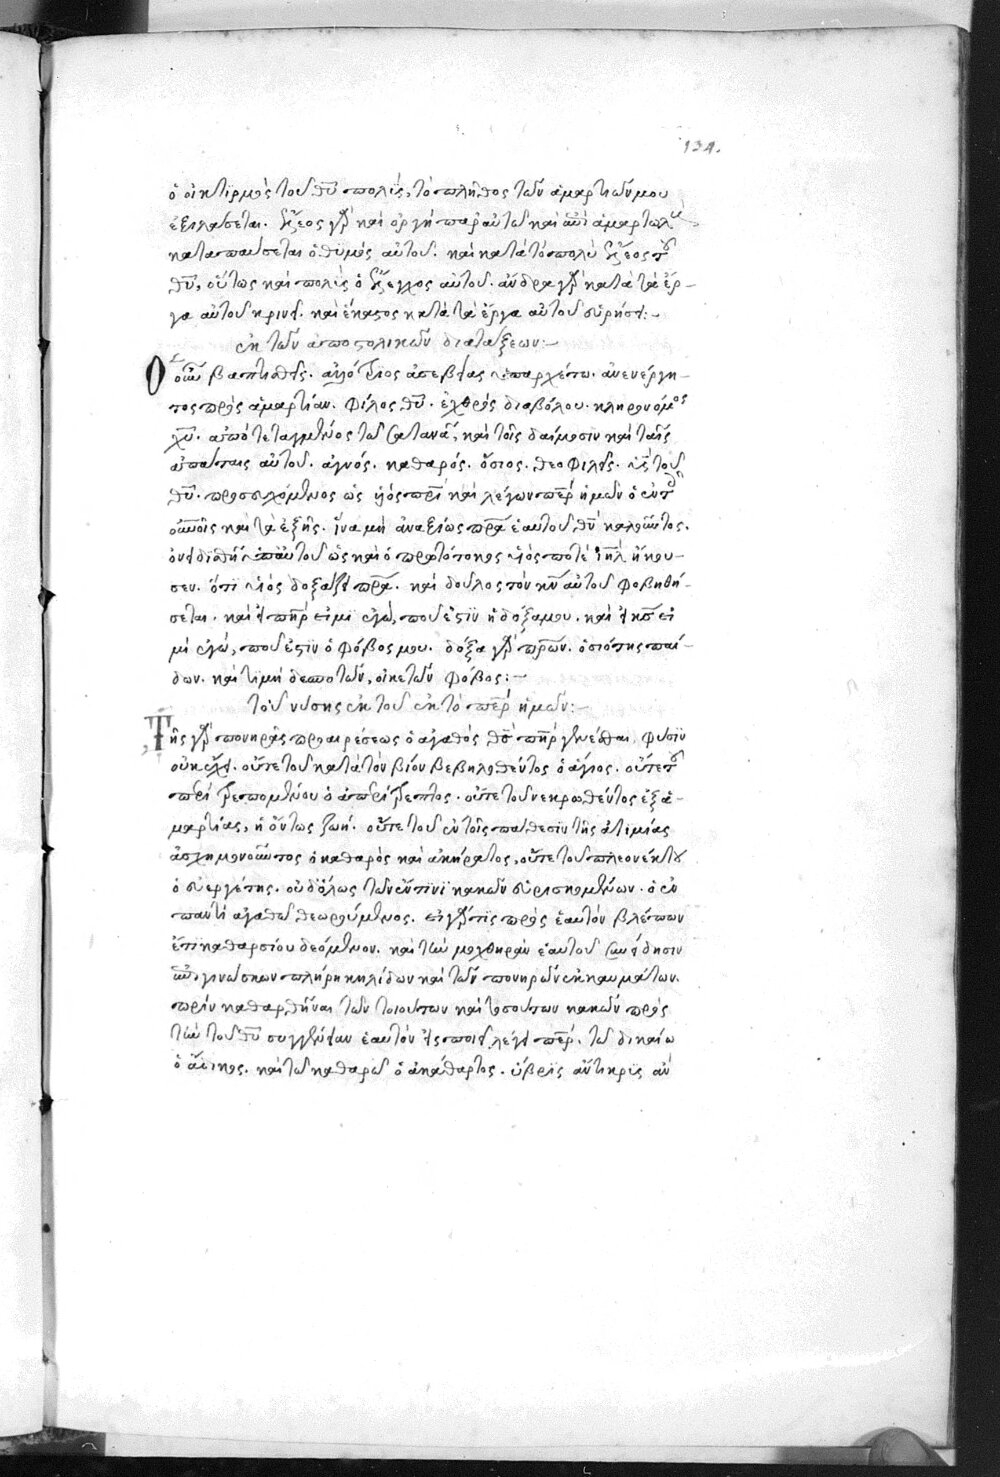 134.
ὁ οἰκτιρμὸς τοῦ θυ πολὺς, τὸ πλῆθος τῶν ἁμαρτιῶν μου
ἐξιλάσεται. ἔλεος γὰρ καὶ ὀργὴ παρ αὐτῶ καὶ ἐπὶ ἁμαρτωλοὺς
καταπαύσεται ὁ θυμὸς αὐτοῦ. καὶ κατὰ τὸ πολὺ ἔλεος τοῦ
θυ, οὕτως καὶ πολὺς ὁ ἔλεγχος αὐτοῦ. ἄνδρα γὰρ κατὰ τὰ ἔρ-
γα αὐτοῦ κρινεῖ. καὶ ἕκαστος κατὰ τὰ ἔργα αὐτοῦ εὑρήσει:-
ἐκ τῶν ἀποστολικῶν διατάξεων:-
Ὁ οὖν βαπτισθεὶς. ἀλλότριος ἀσεβείας ὑπαρχέτω. ἀνενέργη-
τος πρὸς ἁμαρτίαν. φίλος θυ. ἐχθρὸς διαβόλου. κληρονόμος
χυ. ἀποτεταγμένος τῶ σατανᾶ, καὶ τοῖς δαίμοσιν καὶ ταῖς
ἀπάταις αὐτοῦ. ἁγνός. καθαρός. ὅσιος. θεοφιλεῖς. υἱὸς τοῦ
θυ. προσευχόμενος ὡς υἱὸς πρὶ καὶ λέγων περ ἡμῶν ὁ ἐν τοῖς
οὐνοῖς καὶ τὰ ἑξῆς. ἵνα μὴ ἀναξίως πρα ἑαυτοῦ θν καλοῦντος.
ὀνειδισθῆ ὑπ αὐτοῦ ὡς καὶ ὁ πρωτότοκος υἱός ποτέ ιηλ ἤκου-
σεν. ὅτι υἱὸς δοξάζει πρα. καὶ δοῦλος τὸν κν αὐτοῦ φοβηθή-
σεται. καὶ εἰ πηρ εἰμι ἐγώ, ποῦ ἐστιν ἡ δόξα μου. καὶ εἰ κς εἰ
μὶ ἐγώ, ποῦ ἐστιν ὁ φόβος μου. δόξα γὰρ πρων. ὁσιότης παί-
δων. καὶ τιμὴ δεσποτῶν, οἰκετῶν φόβος:-
τοῦ νύσης ἐκ τοῦ ἐκ τὸ περ ἡμῶν:-
Τῆς γὰρ πονηρᾶς προαιρέσεως ὁ ἀγαθὸς θς πηρ γενέσθαι, φύσιν
οὐκ ἔχει. οὔτε τοῦ κατὰ τὸν βίον βεβηλωθέντος ὁ ἅγιος. οὔτε τοῦ
περιτρεπομένου ὁ ἀπερίτρεπτος. οὔτε τοῦ νεκρωθέντος ἐξ ἁ-
μαρτίας, ἡ ὄντως ζωή. οὔτε τοῦ ἐν τοῖς πάθεσιν τῆς ἀτιμίας
ἀσχημονοῦντος ὁ καθαρὸς καὶ ἀκήρατος, οὔτε τοῦ πλεονέκτου
ὁ εὐεργέτης. οὐδ ὅλως τῶν ἔν τινι κακῶν εὑρισκομένων. ὁ ἐν
παντὶ ἀγαθῶ θεωρούμενος. εἰ γάρ τις πρὸς ἑαυτὸν βλέπων
ἔτι καθαρσίου δεόμενον. καὶ τὴν μοχθηρὰν ἑαυτοῦ συνείδησιν
ἐπιγινώσκων πλήρη κηλίδων καὶ τῶν πονηρῶν ἐκκαυμάτων.
πρὶν καθαρθῆναι τῶν τοιούτων καὶ τοσούτων κακῶν πρὸς
τὴν τοῦ θυ συγγένειαν ἑαυτὸν εἰσποιεῖ λέγει περ. τῶ δικαίω
ὁ ἄδικος. καὶ τῶ καθαρῶ ὁ ἀκάθαρτος. ὕβρις ἄντικρις ἂν